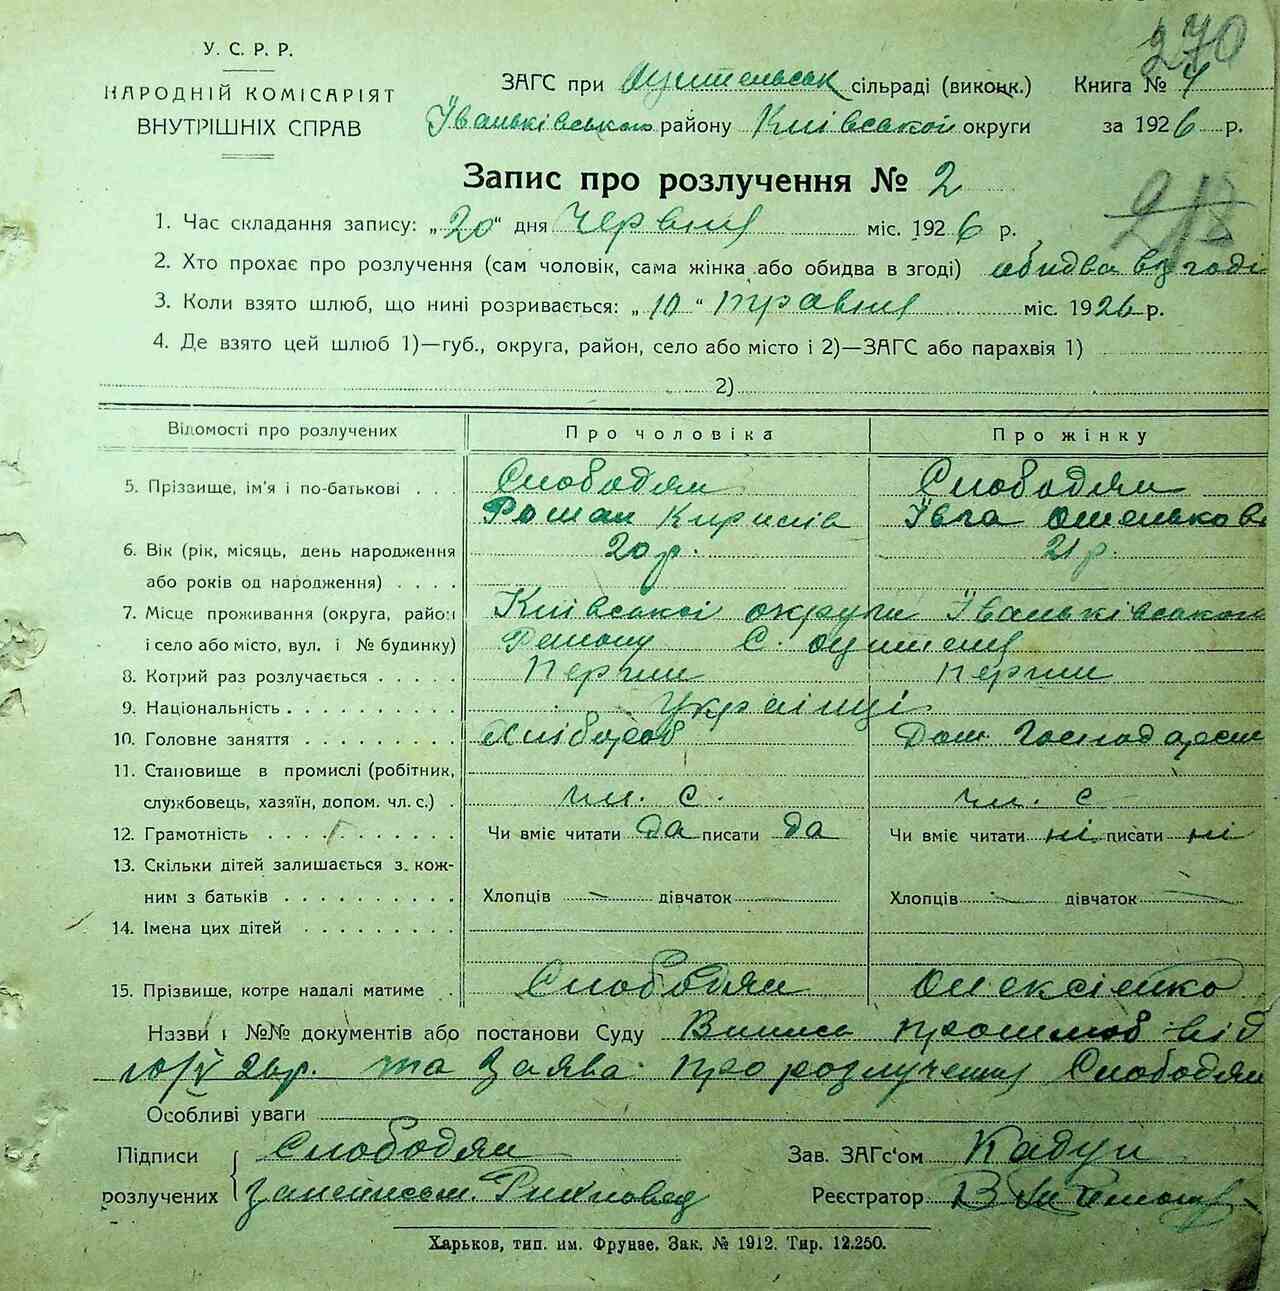 270
У. С. Р. Р.
НАРОДНІЙ КОМІСАРІЯТ
ВНУТРІШНІХ СПРАВ
ЗАГС при сільраді (виконк.) Книга № 4
Іваньківського району Київської округи за 1926 р.
Запис про розлучення № 2
1. Час складання запису: „20“ дня Червня міс. 1926 р.
2. Хто прохає про розлучення (сам чоловік, сама жінка або обидва в згоді) обидва в згоді
3. Коли взято шлюб, що нині розривається: „10“ травня міс. 1926 р.
4. Де взято цей шлюб 1)—губ., округа, район, село або місто і 2)—ЗАГС або парахвія 1)
2)
Відомості про розлучених Про чоловіка Про жінку
5. Пріззище, ім'я і по-батькові . . . Слободян Слободян
Роман Кирилів Івга
6. Вік (рік, місяць, день народження 20 р. 21 р.
або років од народження) . . . .
7. Місце проживання (округа, район Київської округи Іваньківського
і село або місто, вул. і № будинку) Району С.
8. Котрий раз розлучається . . . . . Перший Перший
9. Національність . . . . . . . . . . Українці
10. Головне заняття . . . . . . . . . Хлібороб Дом. Господарст
11. Становище в промислі (робітник,
службовець, хазяїн, допом. чл. с.) . чл. с. чл. с
12. Грамотність . . . . . . . . . Чи вміє читати да писати да Чи вміє читати ні писати ні
13. Скільки дітей залишається з кож-
ним з батьків . . . . . . . . . . Хлопців — дівчаток — Хлопців — дівчаток —
14. Імена цих дітей . . . . . . . . .
15. Прізвище, котре надалі матиме . . Слободян Олексієнко
Назви і №№ документів або постанови Суду Випись про шлюб від
10/V 26 р. та Заява про розлучення Слободян
Особливі уваги
Підписи Слободян Зав. ЗАГс'ом Кадун
розлучених Реєстратор
Харьков, тип. им. Фрунзе. Зак. № 1912. Тир. 12.250.